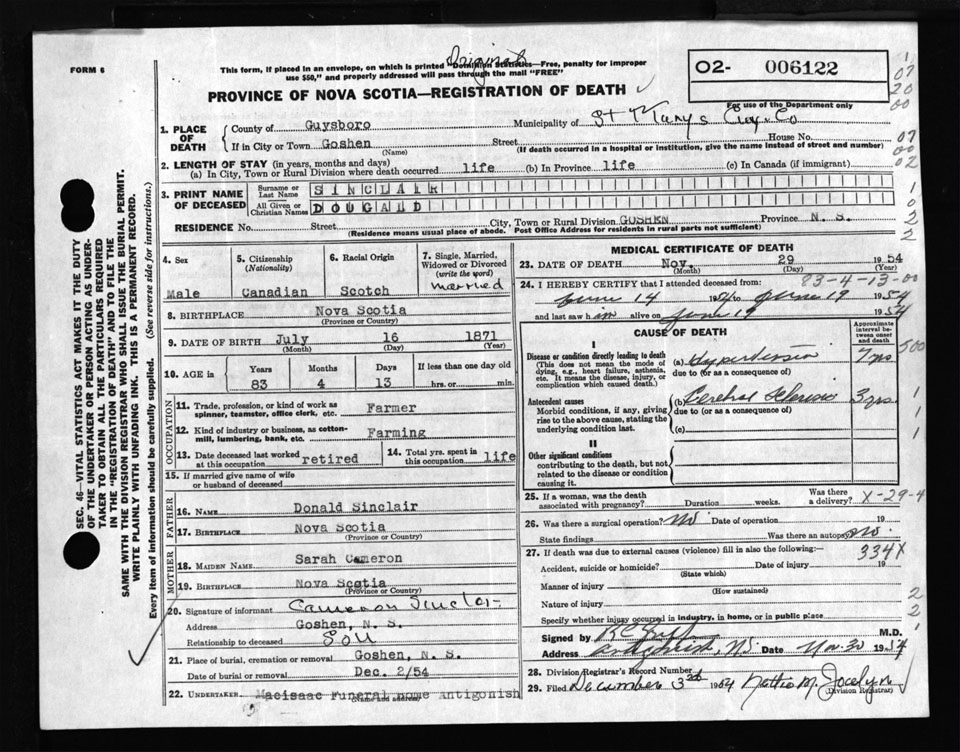 Original
FORM 6
This form, if placed in an envelope, on which is printed "Dominion Statistics—Free, penalty for improper
use $50," and properly addressed will pass through the mail "FREE"
O2- 006122
For use of the Department only
PROVINCE OF NOVA SCOTIA—REGISTRATION OF DEATH
1. PLACE OF DEATH
County of Guysboro Municipality of St Marys Guy. Co
If in City or Town Goshen Street House No.
(Name) (If death occurred in a hospital or institution, give the name instead of street and number)
2. LENGTH OF STAY (in years, months and days)
(a) In City, Town or Rural Division where death occurred life (b) In Province life (c) In Canada (if immigrant)
3. PRINT NAME OF DECEASED
Surname or Last Name SINCLAIR
All Given or Christian Names DOUGALD
RESIDENCE No. Street City, Town or Rural Division GOSHEN Province N. S.
(Residence means usual place of abode. Post Office Address for residents in rural parts not sufficient)
4. Sex
Male
5. Citizenship
(Nationality)
Canadian
6. Racial Origin
Scotch
7. Single, Married, Widowed or Divorced
(write the word)
married
8. BIRTHPLACE Nova Scotia
(Province or Country)
9. DATE OF BIRTH July 16 1871
(Month) (Day) (Year)
10. AGE in
Years Months Days If less than one day old
83 4 13 hrs. or min.
OCCUPATION
11. Trade, profession, or kind of work as
spinner, teamster, office clerk, etc. Farmer
12. Kind of industry or business, as cotton-
mill, lumbering, bank, etc. Farming
13. Date deceased last worked
at this occupation retired
14. Total yrs. spent in
this occupation life
15. If married give name of wife
or husband of deceased
FATHER
16. NAME Donald Sinclair
17. BIRTHPLACE Nova Scotia
(Province or Country)
MOTHER
18. MAIDEN NAME Sarah Cameron
19. BIRTHPLACE Nova Scotia
(Province or Country)
20. Signature of informant Cameron Sinclair
Address Goshen, N. S.
Relationship to deceased Son
21. Place of burial, cremation or removal Goshen, N. S.
Date of burial or removal Dec. 2/54
22. UNDERTAKER Macisaac Funeral home Antigonish
(Name and address)
MEDICAL CERTIFICATE OF DEATH
23. DATE OF DEATH Nov. 29 1954
(Month) (Day) (Year)
83-4-13-00
24. I HEREBY CERTIFY that I attended deceased from:
June 14 1954 to June 19 1954
and last saw him alive on June 19 1954
CAUSE OF DEATH
Approximate interval between onset and death
I
Disease or condition directly leading to death
(This does not mean the mode of
dying, e.g., heart failure, asthenia,
etc. It means the disease, injury, or
complication which caused death.)
(a) Hypertension 7 yrs
due to (or as a consequence of)
Antecedent causes
Morbid conditions, if any, giving
rise to the above cause, stating the
underlying condition last.
(b) Cerebral Sclerosis 3 yrs.
due to (or as a consequence of)
(c)
II
Other significant conditions
contributing to the death, but not
related to the disease or condition
causing it.
25. If a woman, was the death
associated with pregnancy? Duration weeks. Was there a delivery? X-29-4
26. Was there a surgical operation? No Date of operation 19
State findings Was there an autopsy? No.
27. If death was due to external causes (violence) fill in also the following:— 334X
Accident, suicide or homicide? Date of injury 19
(State which)
Manner of injury
(How sustained)
Nature of injury
Specify whether injury occurred in industry, in home, or in public place
Signed by M.D.
Address Antigonish, N.S. Date Nov. 30 1954
28. Division Registrar's Record Number
29. Filed December 3rd 1954 Nettie M. Jocelyn
(Division Registrar)
SEC. 46—VITAL STATISTICS ACT MAKES IT THE DUTY
OF THE UNDERTAKER OR PERSON ACTING AS UNDER-
TAKER TO OBTAIN ALL THE PARTICULARS REQUIRED
IN THE "REGISTRATION OF DEATH" AND TO FILE THE
SAME WITH THE DIVISION REGISTRAR WHO SHALL ISSUE THE BURIAL PERMIT.
WRITE PLAINLY WITH UNFADING INK. THIS IS A PERMANENT RECORD.
Every item of information should be carefully supplied. (See reverse side for instructions.)
1
07
20
00
07
00
02
1
0
2
2
500
1
1
1
2
2
1